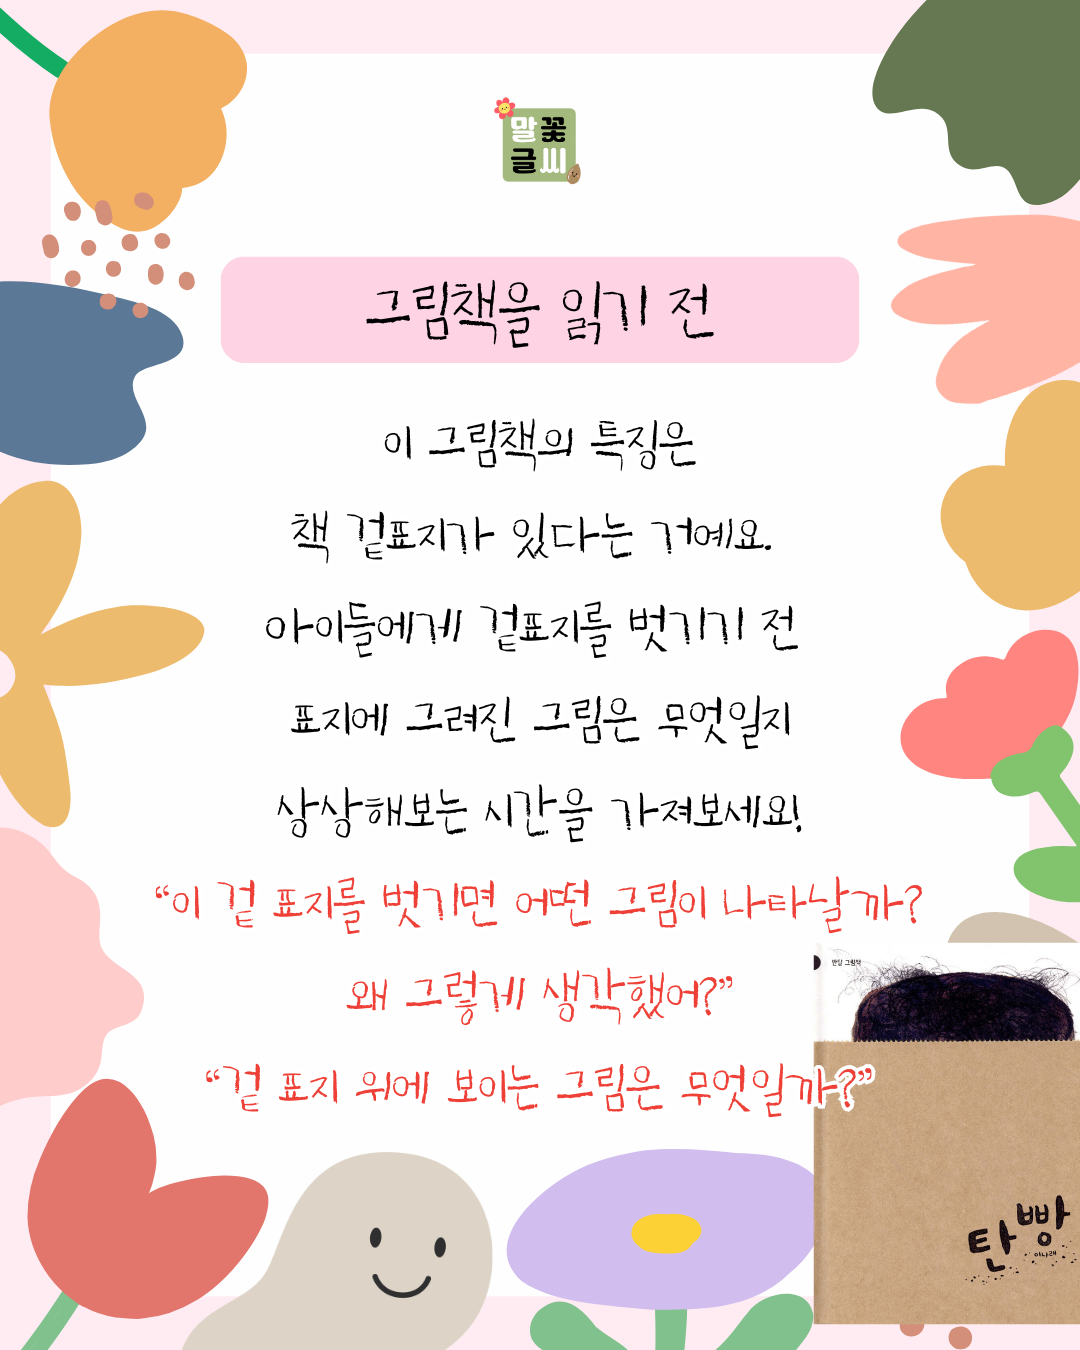 말꽃
글씨
그림책을 읽기 전
이 그림책의 특징은
책 겉표지가 있다는 거예요.
아이들에게 겉표지를 벗기기 전
표지에 그려진 그림은 무엇일지
상상해보는 시간을 가져보세요!
“이 겉 표지를 벗기면 어떤 그림이 나타날까?
왜 그렇게 생각했어?”
“겉 표지 위에 보이는 그림은 무엇일까?”
반달 그림책
탄빵
이나래